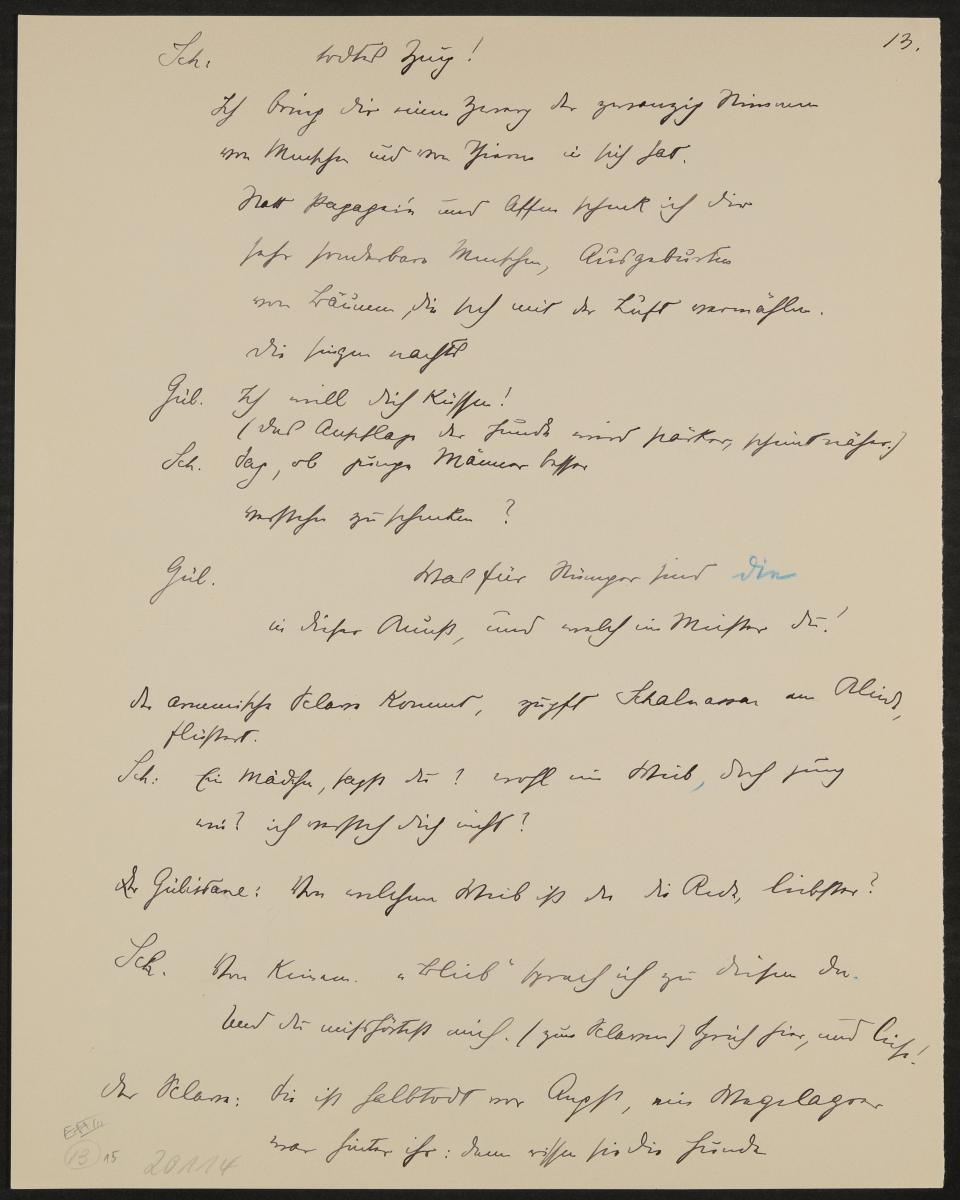 13.
Sch: todtes Zeug!
Ich bring dir einen Zwerg der zwanzig Stimmen
von Menschen und von Thieren in sich hat.
Statt Papagein und Affen schenk ich dir
sehr sonderbare Menschen, Ausgeburten
von Bäumen, die sich mit der Luft vermählen.
die singen nachts
Gül. Ich will dich küssen!
(das Anschlagen der Hunde wird stärker, scheint näher.)
Sch. Sag, ob junge Männer besser
verstehn zu schenken?
Gül. Was für Stümper sind die
in dieser Kunst, und welch ein Meister du!
der armenische Sclave kommt, zupft Schalnassar am Kleid,
flüstert.
Sch: Ein Mädchen, sagst du? wohl ein Weib, doch jung
wie? ich versteh dich nicht?
Gülistane: Von welchem Weib ist da die Rede, liebster?
Sch. Von Keinem. „Bleib" sprach ich zu diesem da.
Und du misshörtest mich. (zum Sclaven) Sprich hier, und leise!
der Sclave: Sie ist halbtodt vor Angst, ein Wegelagrer
war hinter ihr: dann rissen sie die Hunde
13 15 20114